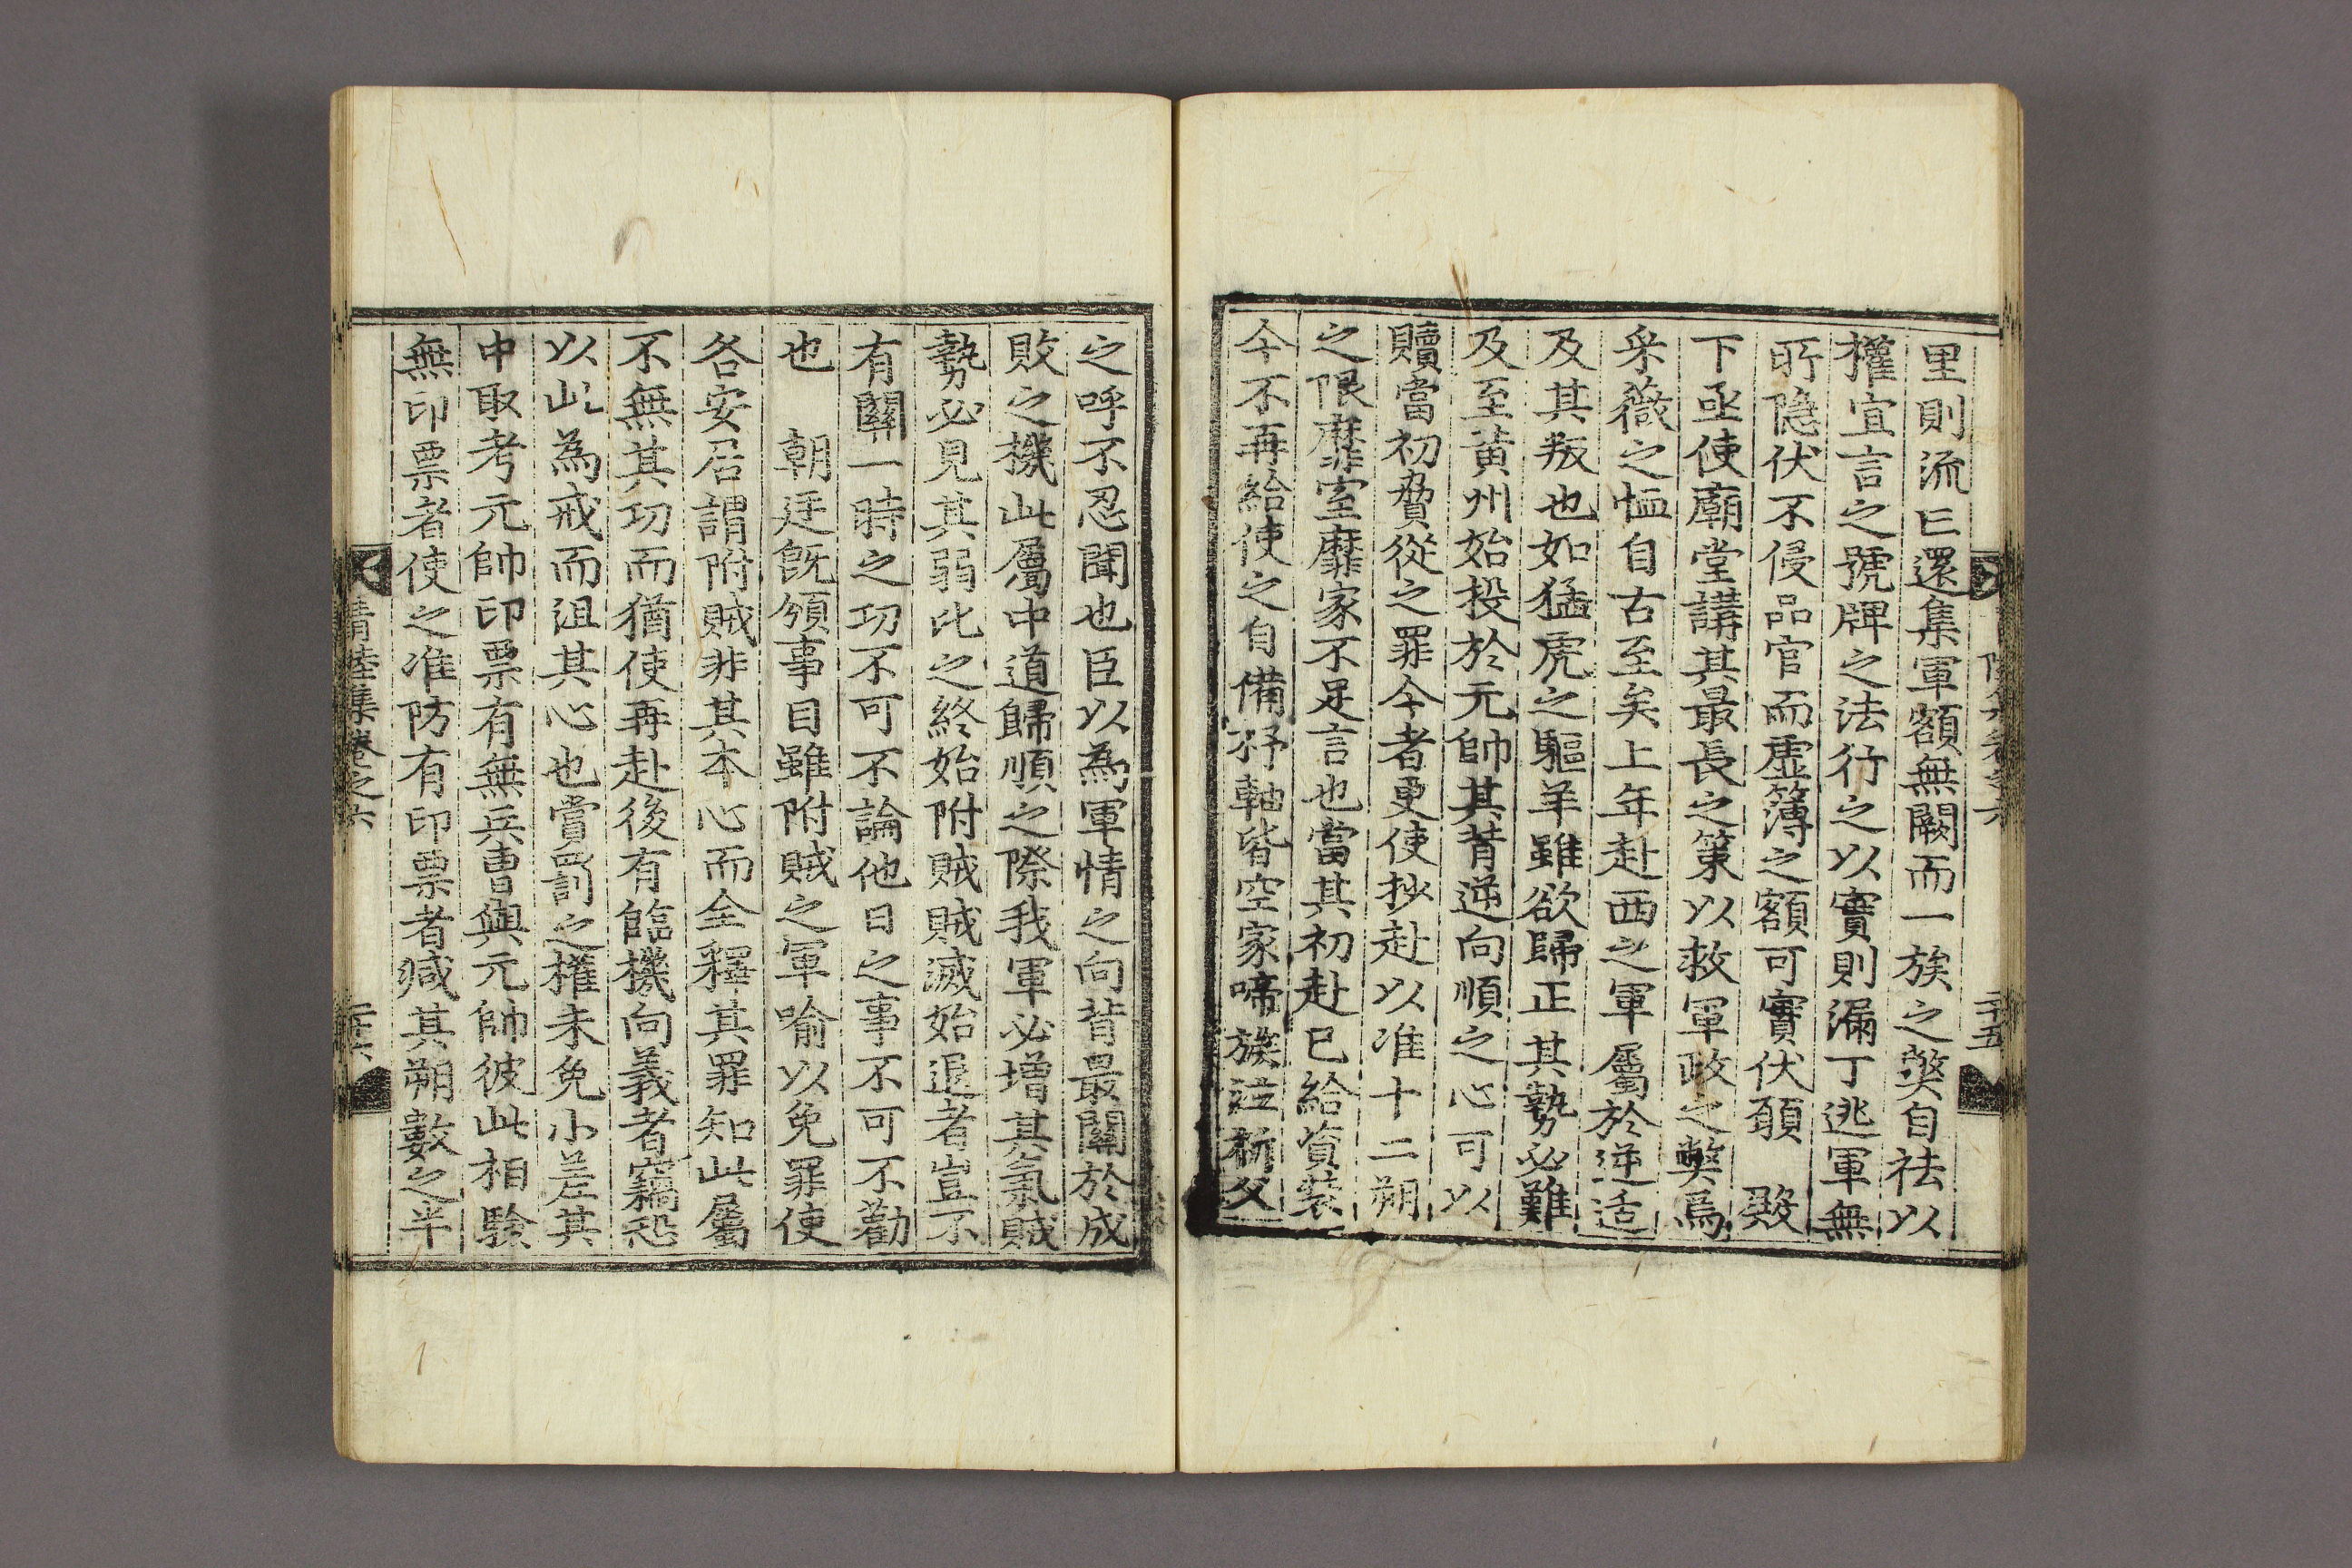 里則流亡還集軍額無闕而一族之獘自祛以
權宜言之號牌之法行之以實則漏丁逃軍無
所隱伏不侵品官而虛簿之額可實伏願　殿
下亟使廟堂講其最長之策以救軍政之獘焉
采薇之恤自古至矣上年赴西之軍屬於逆适
及其叛也如猛虎之驅羊雖欲歸正其勢必難
及至黃州始投於元帥其背逆向順之心可以
贖當初脅從之罪今者更使抄赴以准十二朔
之限靡室靡家不足言也當其初赴已給資裝
今不再給使之自備杼軸皆空家啼族泣祈父
之呼不忍聞也臣以為軍情之向背最關於成
敗之機此屬中道歸順之際我軍必增其氣賊
勢必見其弱比之終始附賊賊滅始退者豈不
有關一時之功不可不論他日之事不可不勸
也　朝廷旣頒事目雖附賊之軍喻以免罪使
各安居謂附賊非其本心而全釋其罪知此屬
不無其功而猶使再赴後有臨機向義者竊恐
以此為戒而沮其心也賞罰之權未免小差其
中取考元帥印票有無兵曹與元帥彼此相驗
無印票者使之准防有印票者减其朔數之半
集卷之六